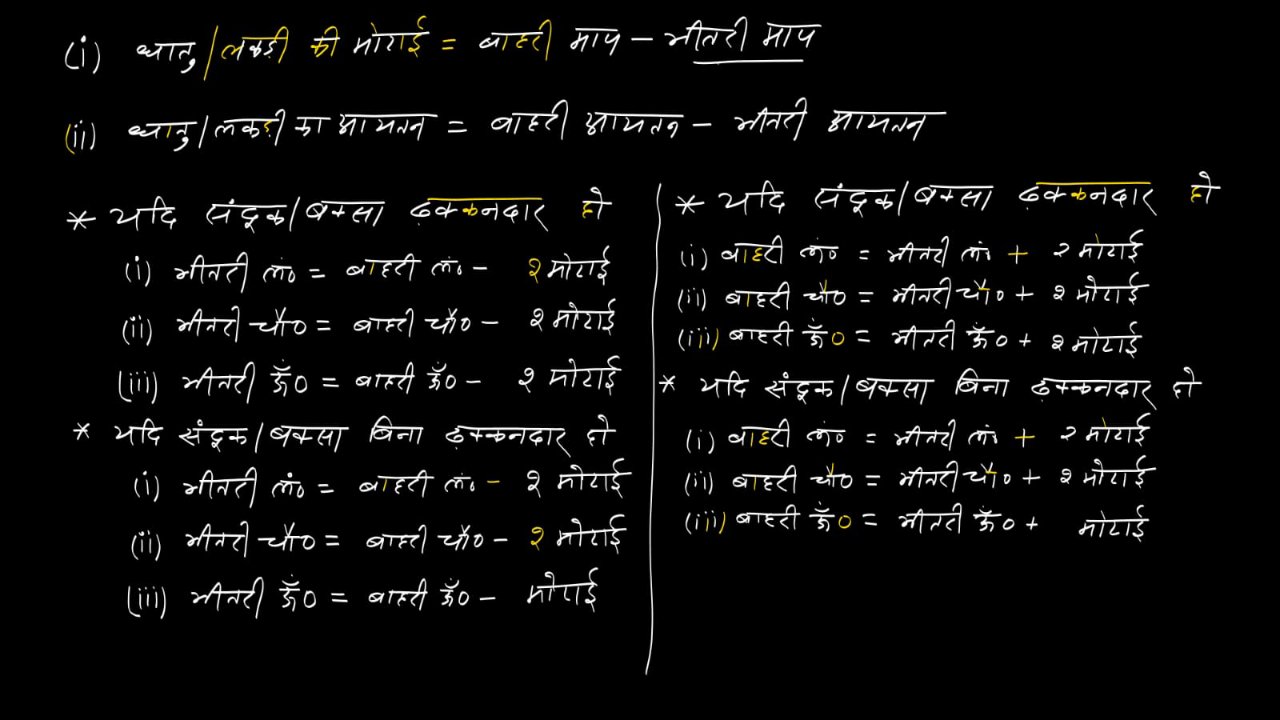 (i) धातु/लकड़ी की मोटाई = बाहरी माप - भीतरी माप
(ii) धातु/लकड़ी का आयतन = बाहरी आयतन - भीतरी आयतन
* यदि संदूक/बक्सा ढक्कनदार हो
(i) भीतरी लं० = बाहरी लं० - २ मोटाई
(ii) भीतरी चौ० = बाहरी चौ० - २ मोटाई
(iii) भीतरी ऊँ० = बाहरी ऊँ० - २ मोटाई
* यदि संदूक/बक्सा बिना ढक्कनदार हो
(i) भीतरी लं० = बाहरी लं० - २ मोटाई
(ii) भीतरी चौ० = बाहरी चौ० - २ मोटाई
(iii) भीतरी ऊँ० = बाहरी ऊँ० - मोटाई
* यदि संदूक/बक्सा ढक्कनदार हो
(i) बाहरी लं० = भीतरी लं० + २ मोटाई
(ii) बाहरी चौ० = भीतरी चौ० + २ मोटाई
(iii) बाहरी ऊँ० = भीतरी ऊँ० + २ मोटाई
* यदि संदूक/बक्सा बिना ढक्कनदार हो
(i) बाहरी लं० = भीतरी लं० + २ मोटाई
(ii) बाहरी चौ० = भीतरी चौ० + २ मोटाई
(iii) बाहरी ऊँ० = भीतरी ऊँ० + मोटाई